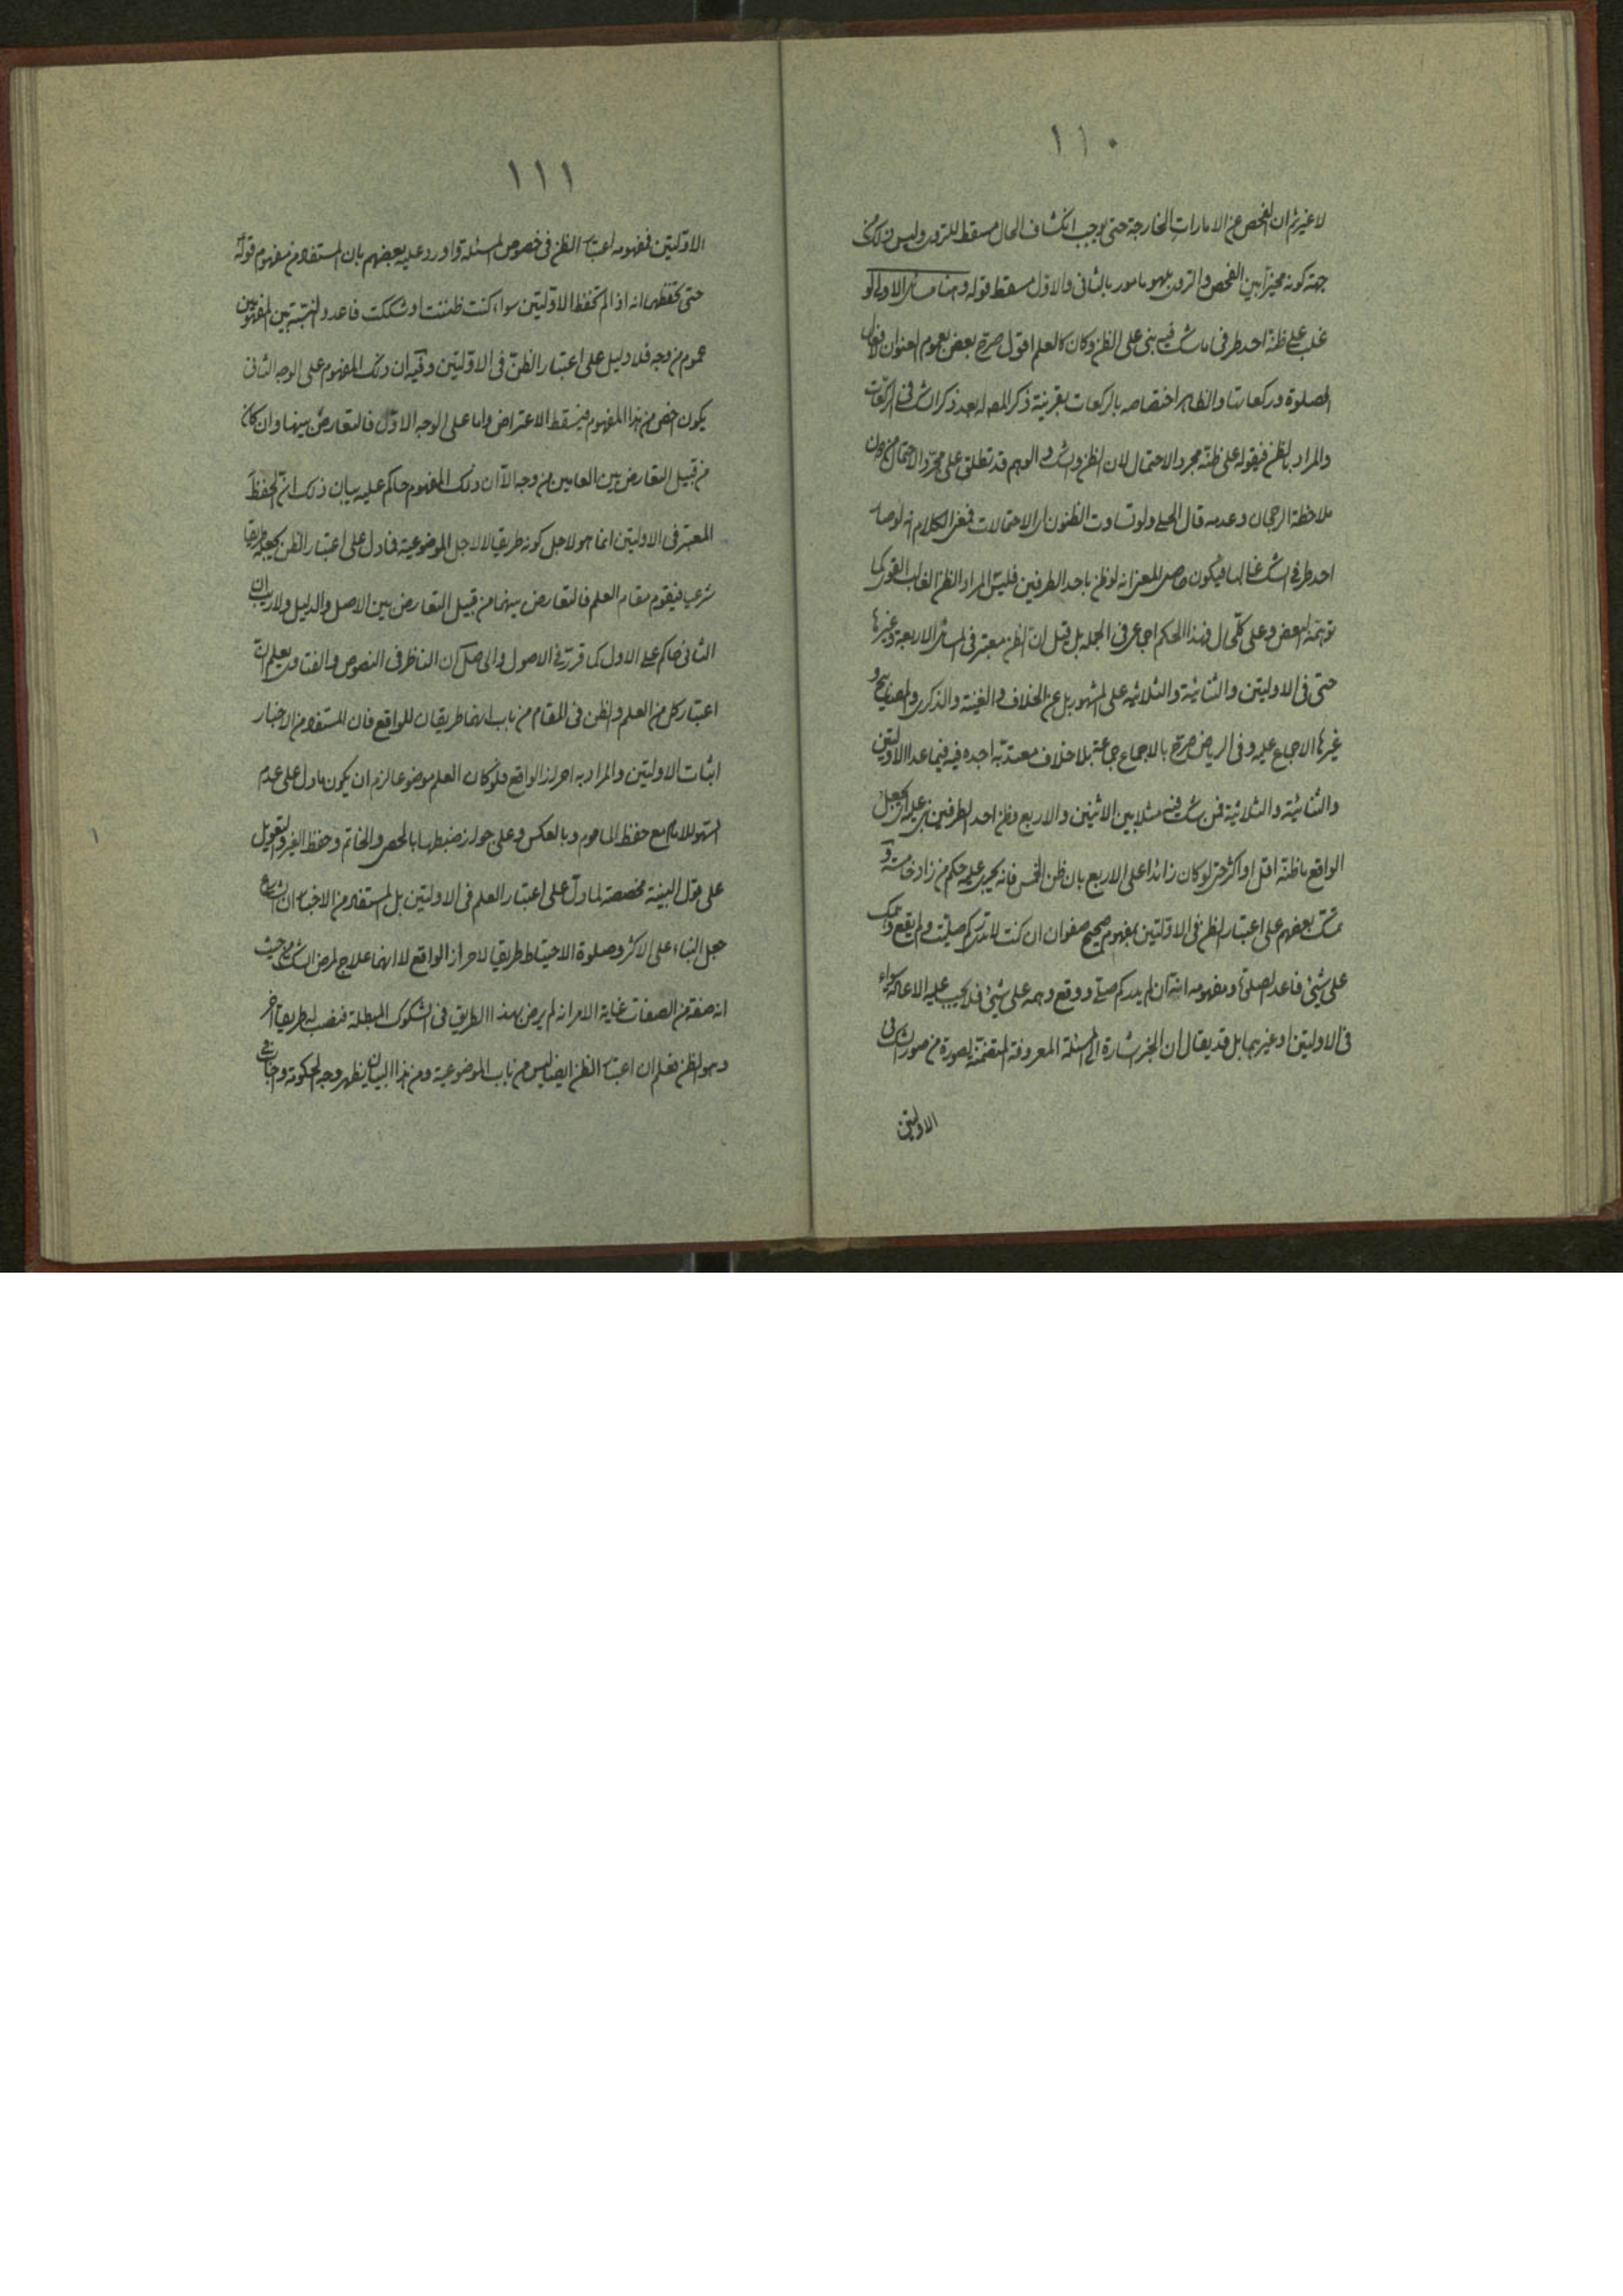 ١١٠
لا غير ثم ان الفحص عن الامارات الخارجة حتى يوجب انكشاف الحال مسقط للتروى وليس ذلك من
جهة كونه مخيرا بين الفحص والتروى بل هو مامور بالثانى والاول مسقط قوله وهنا مسائل الاولى لو
غلب على ظنه احد طرفى ما شك فيه بنى على الظن وكان كالعلم اقول صرح بعض بعموم العنوان لافعال
الصلوة وركعاتها والظاهر اختصاصه بالركعات بقرينة ذكر المص له بعد ذكر الشك فى الركعات
والمراد بالظن فيقوله على ظنه مجرد الاحتمال لان الظن والشك والوهم قد تطلق على مجرد الاحتمال من دون
ملاحظة الرجحان وعدمه قال الحلى ولو تساوت الظنون اى الاحتمالات فمعنى الكلام انه لو صار
احد طرفى الشك غالبا فيكون حاصل المعنى انه لو ظن باحد الطرفين فليس المراد الظن الغالب القوى كما
توهمه البعض وعلى كل حال فهذا الحكم اجماعى فى الجملة بل قيل ان الظن معتبر فى المسائل الاربعة وغيرها
حتى فى الاوليتين والثنائية والثلاثية على المشهور بل عن الخلاف والغنية والذكرى والمصابيح و
غيرها الاجماع عليه وفى الرياض صرح بالاجماع جماعة بلا خلاف معتد به اجده فيه فيما عدا الاوليتين
والثنائية والثلاثية فمن شك فيه مثلا بين الاثنين والاربع وظن احد الطرفين بنى عليه اى يجعل
الواقع ما ظنه اقل او اكثر حتى لو كان زائدا على الاربع بان ظن الخمس فانه يجرى عليه حكم من زاد خامسة و
تمسك بعضهم على اعتبار الظن فى الاوليتين بمفهوم صحيح صفوان ان كنت لا تدرى كم صليت ولم يقع وهمك
على شئ فاعد الصلوة ومفهومه انه ان لم يدر كم صلى ووقع وهمه على شئ فلا يجب عليه الاعادة سواء
فى الاوليتين او غيرهما بل قد يقال ان الخبر اشارة الى المسئلة المعروفة المتضمنة لصورة من صور الشك فى
الاوليتين
١١١
الاوليتين فمفهومه اعتبار الظن فى خصوص المسئلة واورد عليه بعضهم بان المستفاد من مفهوم قوله
حتى تحفظهما انه اذا لم تحفظ الاوليتين سواء كنت ظننت او شككت فاعد والنسبة بين المفهومين
عموم من وجه فلا دليل على اعتبار الظن فى الاوليتين وفيه ان ذلك المفهوم على الوجه الثانى
يكون اخص من هذا المفهوم فيسقط الاعتراض واما على الوجه الاول فالتعارض بينهما وان كان
من قبيل التعارض بين العامين من وجه الا ان ذلك المفهوم حاكم عليه بيان ذلك ان الحفظ
المعتبر فى الاوليتين انما هو لاجل كونه طريقا لا لاجل الموضوعية فما دل على اعتبار الظن يجعله طريقا
شرعيا فيقوم مقام العلم فالتعارض بينهما من قبيل التعارض بين الاصل والدليل ولا ريب ان
الثانى حاكم على الاول كما قرر فى الاصول والحاصل ان الناظر فى النصوص والفتاوى يعلم ان
اعتبار كل من العلم والظن فى المقام من باب انهما طريقان للواقع فان المستفاد من الاخبار
اثبات الاوليتين والمراد به احراز الواقع فلو كان العلم موضوعا لزم ان يكون ما دل على عدم
السهو للامام مع حفظ الماموم وبالعكس وعلى جواز ضبطها بالحصى والخاتم وحفظ الغير والتعويل
على قول البينة مخصصة لما دل على اعتبار العلم فى الاوليتين بل المستفاد من الاخبار ان الشارع
جعل البناء على الاكثر وصلوة الاحتياط طريقا لاحراز الواقع لا انهما علاج لمرض الشك من حيث
انه صفة من الصفات غاية الامر انه لم يرض بهذا الطريق فى الشكوك المبطلة فنصب له طريقا آخر
وهو الظن فعلم ان اعتبار الظن ايضا ليس من باب الموضوعية ومن هذا البيان يظهر وجه الحكومة